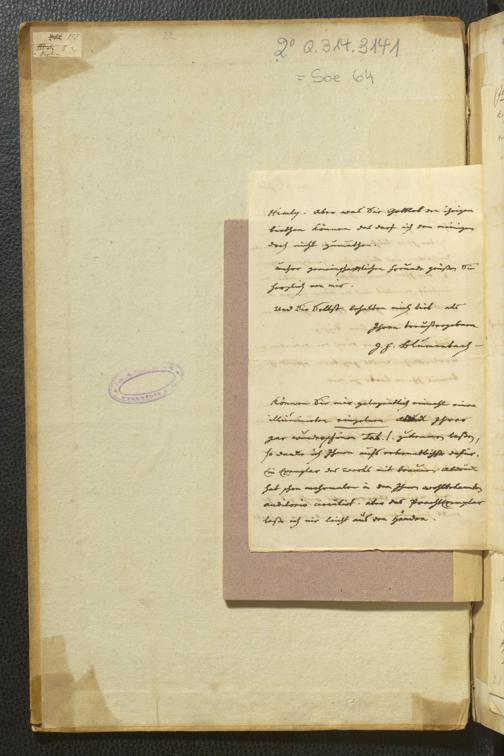 2° Q.314.3141
= Soe 64
Himly. Aber was Sie Gottlob den ihrigen
biethen können das darf ich den meinigen
doch nicht zumuthen.
Unsre gemeinschaftlichen Freunde grüßen Sie
herzlich von mir.
Und Sie Selbst behalten mich lieb als
Ihren treuergebenen
J. F. Blumenbach
Können Sie mir gelegentlich einmahl einen
illuminirten einzelnen Ihrer
gar wunderschönen Tab. 1. zukommen laßen,
so danke ich Ihnen aufs verbindlichste dafür.
Ein Exemplar des Werks mit braunem Abdruck
hat schon mehrmalen in dem Ihnen wohlbekannten
auditorio circulirt. aber das Prachtexemplar
laße ich nie leicht aus den Händen.